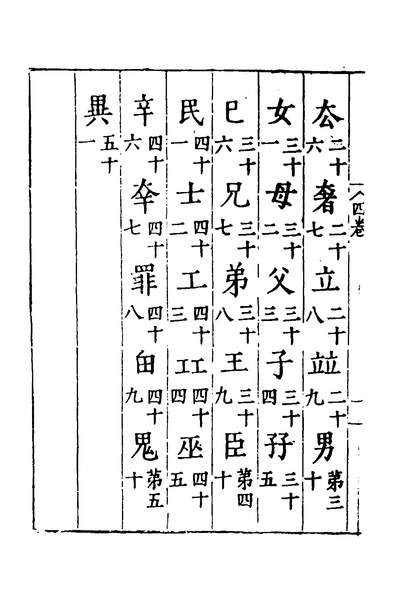 厺二十六 奢二十七 立二十八 竝二十九 男第三十
女三十一 母三十二 父三十三 子三十四 孖三十五
巳三十六 兄三十七 弟三十八 王三十九 臣第四十
民四十一 士四十二 工四十三 工工四十四 巫四十五
辛四十六 㚔四十七 罪四十八 甶四十九 鬼第五十
異五十一